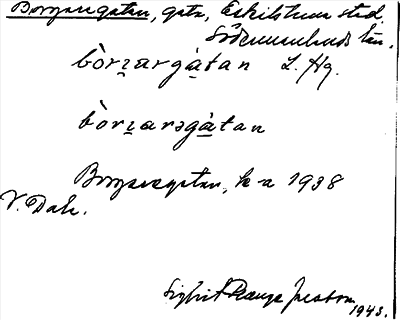 Borgaregatan, gata, Eskilstuna stad,
Södermanlands län.
bòrɪ̯argàtan L. Hg.
bòrɪ̯arəgàtan
Borgaregatan, k-a 1938
V. Dah.
Sigfrid
1943.